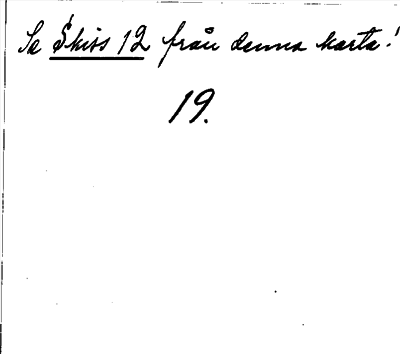 Se Skiss 12 från denna karta!
19.